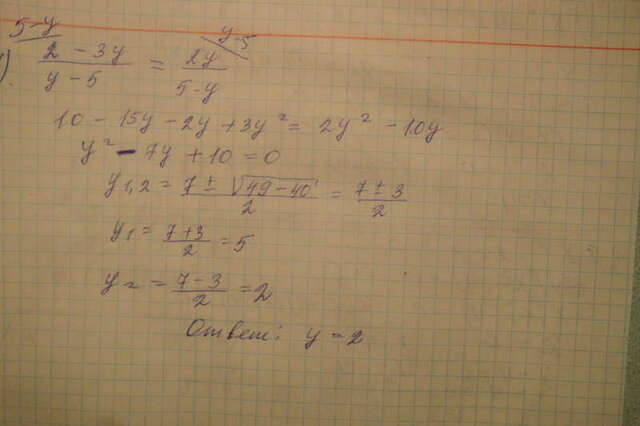 5-y y-5
) 2 - 3y / y - 5 = 2y / 5-y
10 - 15y - 2y + 3y² = 2y² - 10y
y² - 7y + 10 = 0
y1,2 = 7 ± √49-40 / 2 = 7 ± 3 / 2
y1 = 7+3 / 2 = 5
y2 = 7-3 / 2 = 2
Ответ: y = 2